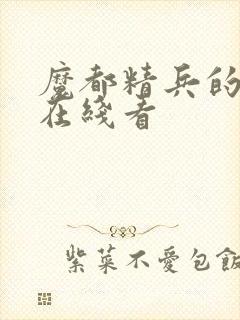 魔都精兵的
在綫看
紫菜不愛包飯